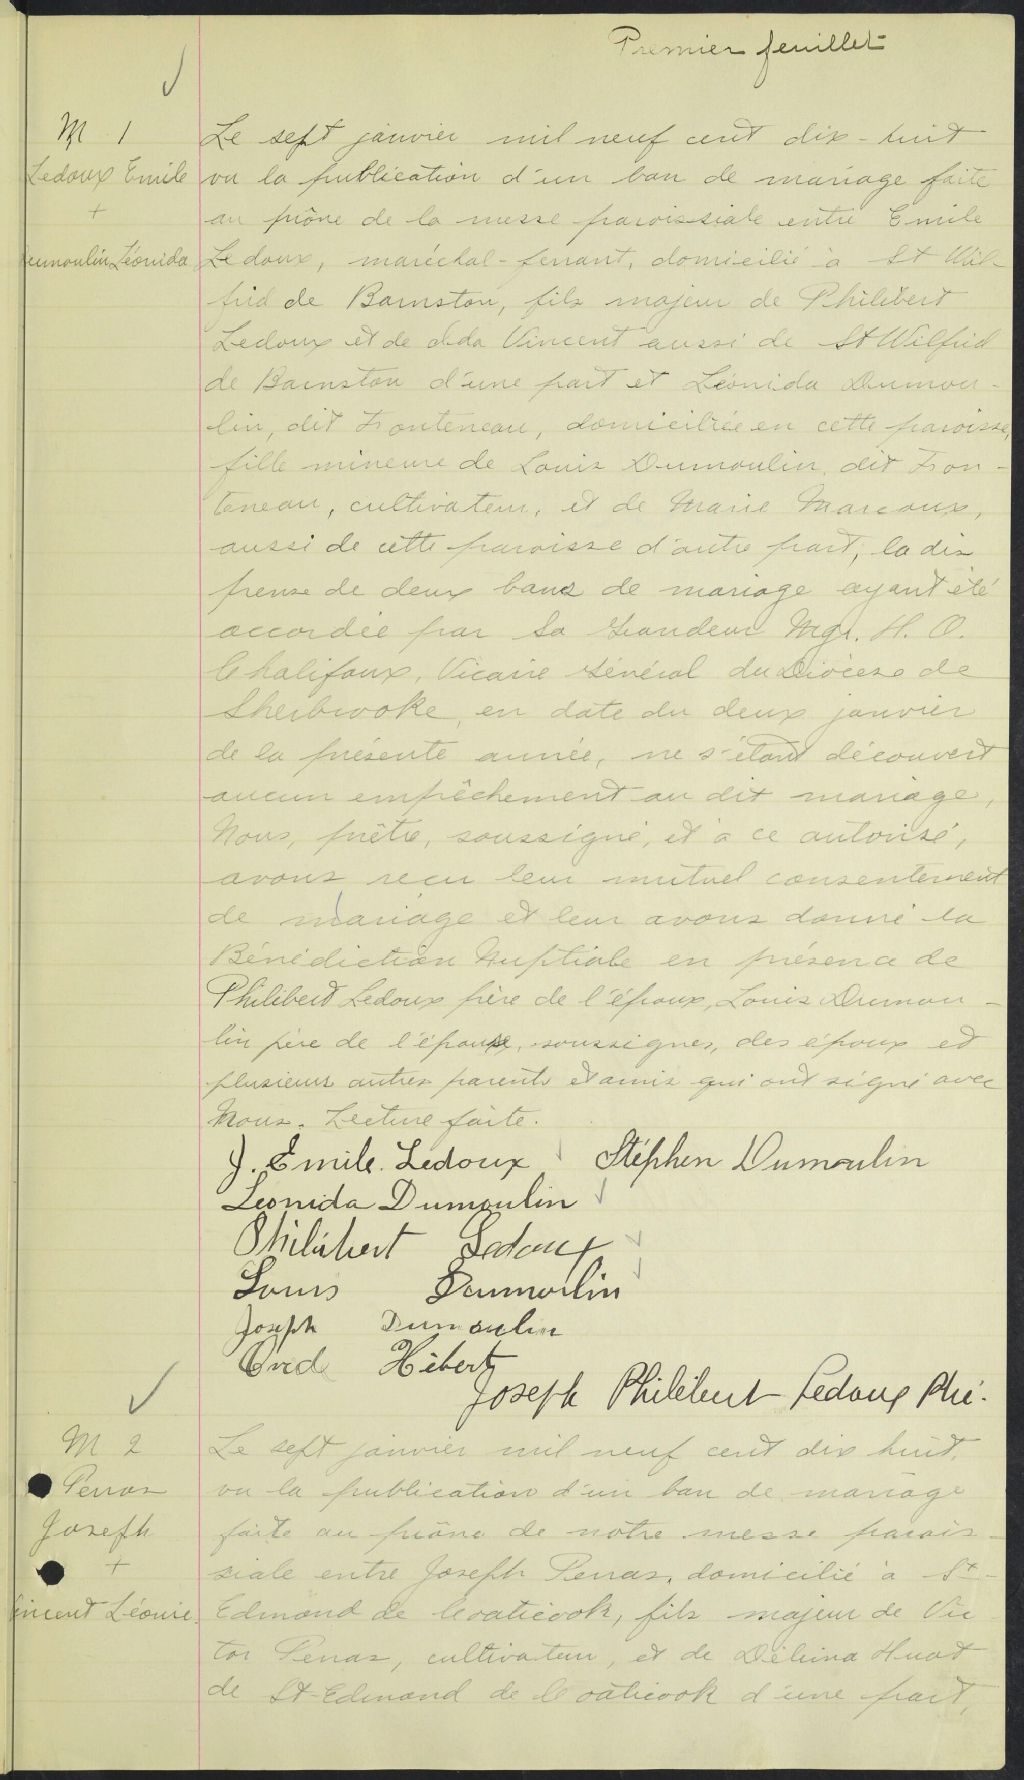 Premier feuillet
M 1
Ledoux Emile
+
Dumoulin Léonida
Le sept janvier mil neuf cent dix-huit
vu la publication d'un ban de mariage faite
au prône de la messe paroissiale entre Emile
Ledoux, maréchal-ferrant, domicilié à St Wil-
frid de Barnston, fils majeur de Philibert
Ledoux et de Vincent aussi de St Wilfrid
de Barnston d'une part et Léonida Dumou-
lin, dit Fronteneau, domiciliée en cette paroisse,
fille mineure de Louis Dumoulin, dit Fron-
teneau, cultivateur, et de Marie Marcoux,
aussi de cette paroisse d'autre part; la dis
pense de deux bans de mariage ayant été
accordée par Sa Grandeur Mgr. H. O.
Chalifoux, Vicaire Général du Diocèse de
Sherbrooke, en date du deux janvier
de la présente année, ne s'étant découvert
aucun empêchement au dit mariage,
Nous, prêtre, soussigné, et à ce autorisé,
avons reçu leur mutuel consentement
de mariage et leur avons donné la
Bénédiction Nuptiale en présence de
Philibert Ledoux père de l'époux, Louis Dumou-
lin père de l'épouse, soussignés, des époux et
plusieurs autres parents et amis qui ont signé avec
Nous. Lecture faite.
J. Emile Ledoux Stéphen Dumoulin
Leonida Dumoulin
Philibert Ledoux
Louis Dumoulin
Joseph Dumoulin
Ovide Hébert
Joseph Philibert Ledoux Ptre.
M 2
Perras
Joseph
+
Vincent Léonie
Le sept janvier mil neuf cent dix huit,
vu la publication d'un ban de mariage
faite au prône de notre messe parois-
siale entre Joseph Perras, domicilié à St-
Edmond de Coaticook, fils majeur de Vic
tor Perras, cultivateur, et de Délima Huot
de St-Edmond de Coaticook d'une part,